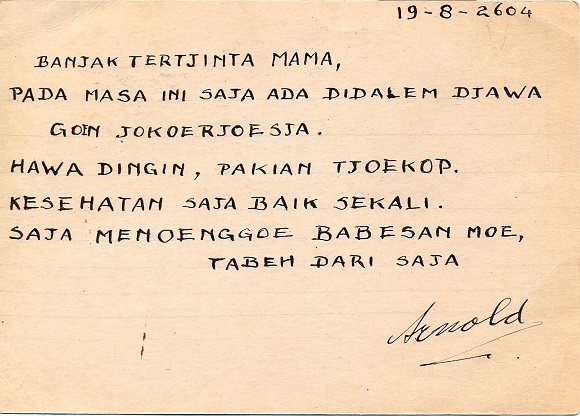 19-8-2604
BANJAK TERTJINTA MAMA,
PADA MASA INI SAJA ADA DIDALEM DJAWA
GOEN JOKOERJOESJA.
HAWA DINGIN, PAKIAN TJOEKOP.
KESEHATAN SAJA BAIK SEKALI.
SAJA MENOENGGOE BABESAN MOE,
TABEH DARI SAJA
Arnold